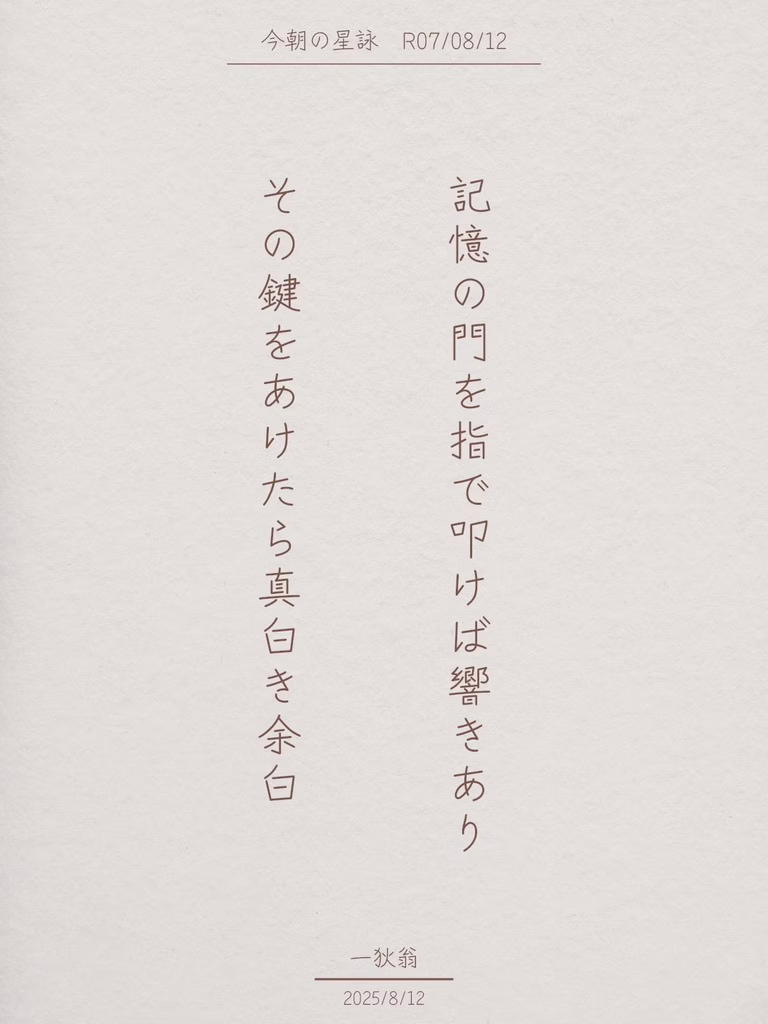 今朝の星詠　R07/08/12
記憶の門を指で叩けば響きあり
その鍵をあけたら真白き余白
一狄翁
2025/8/12